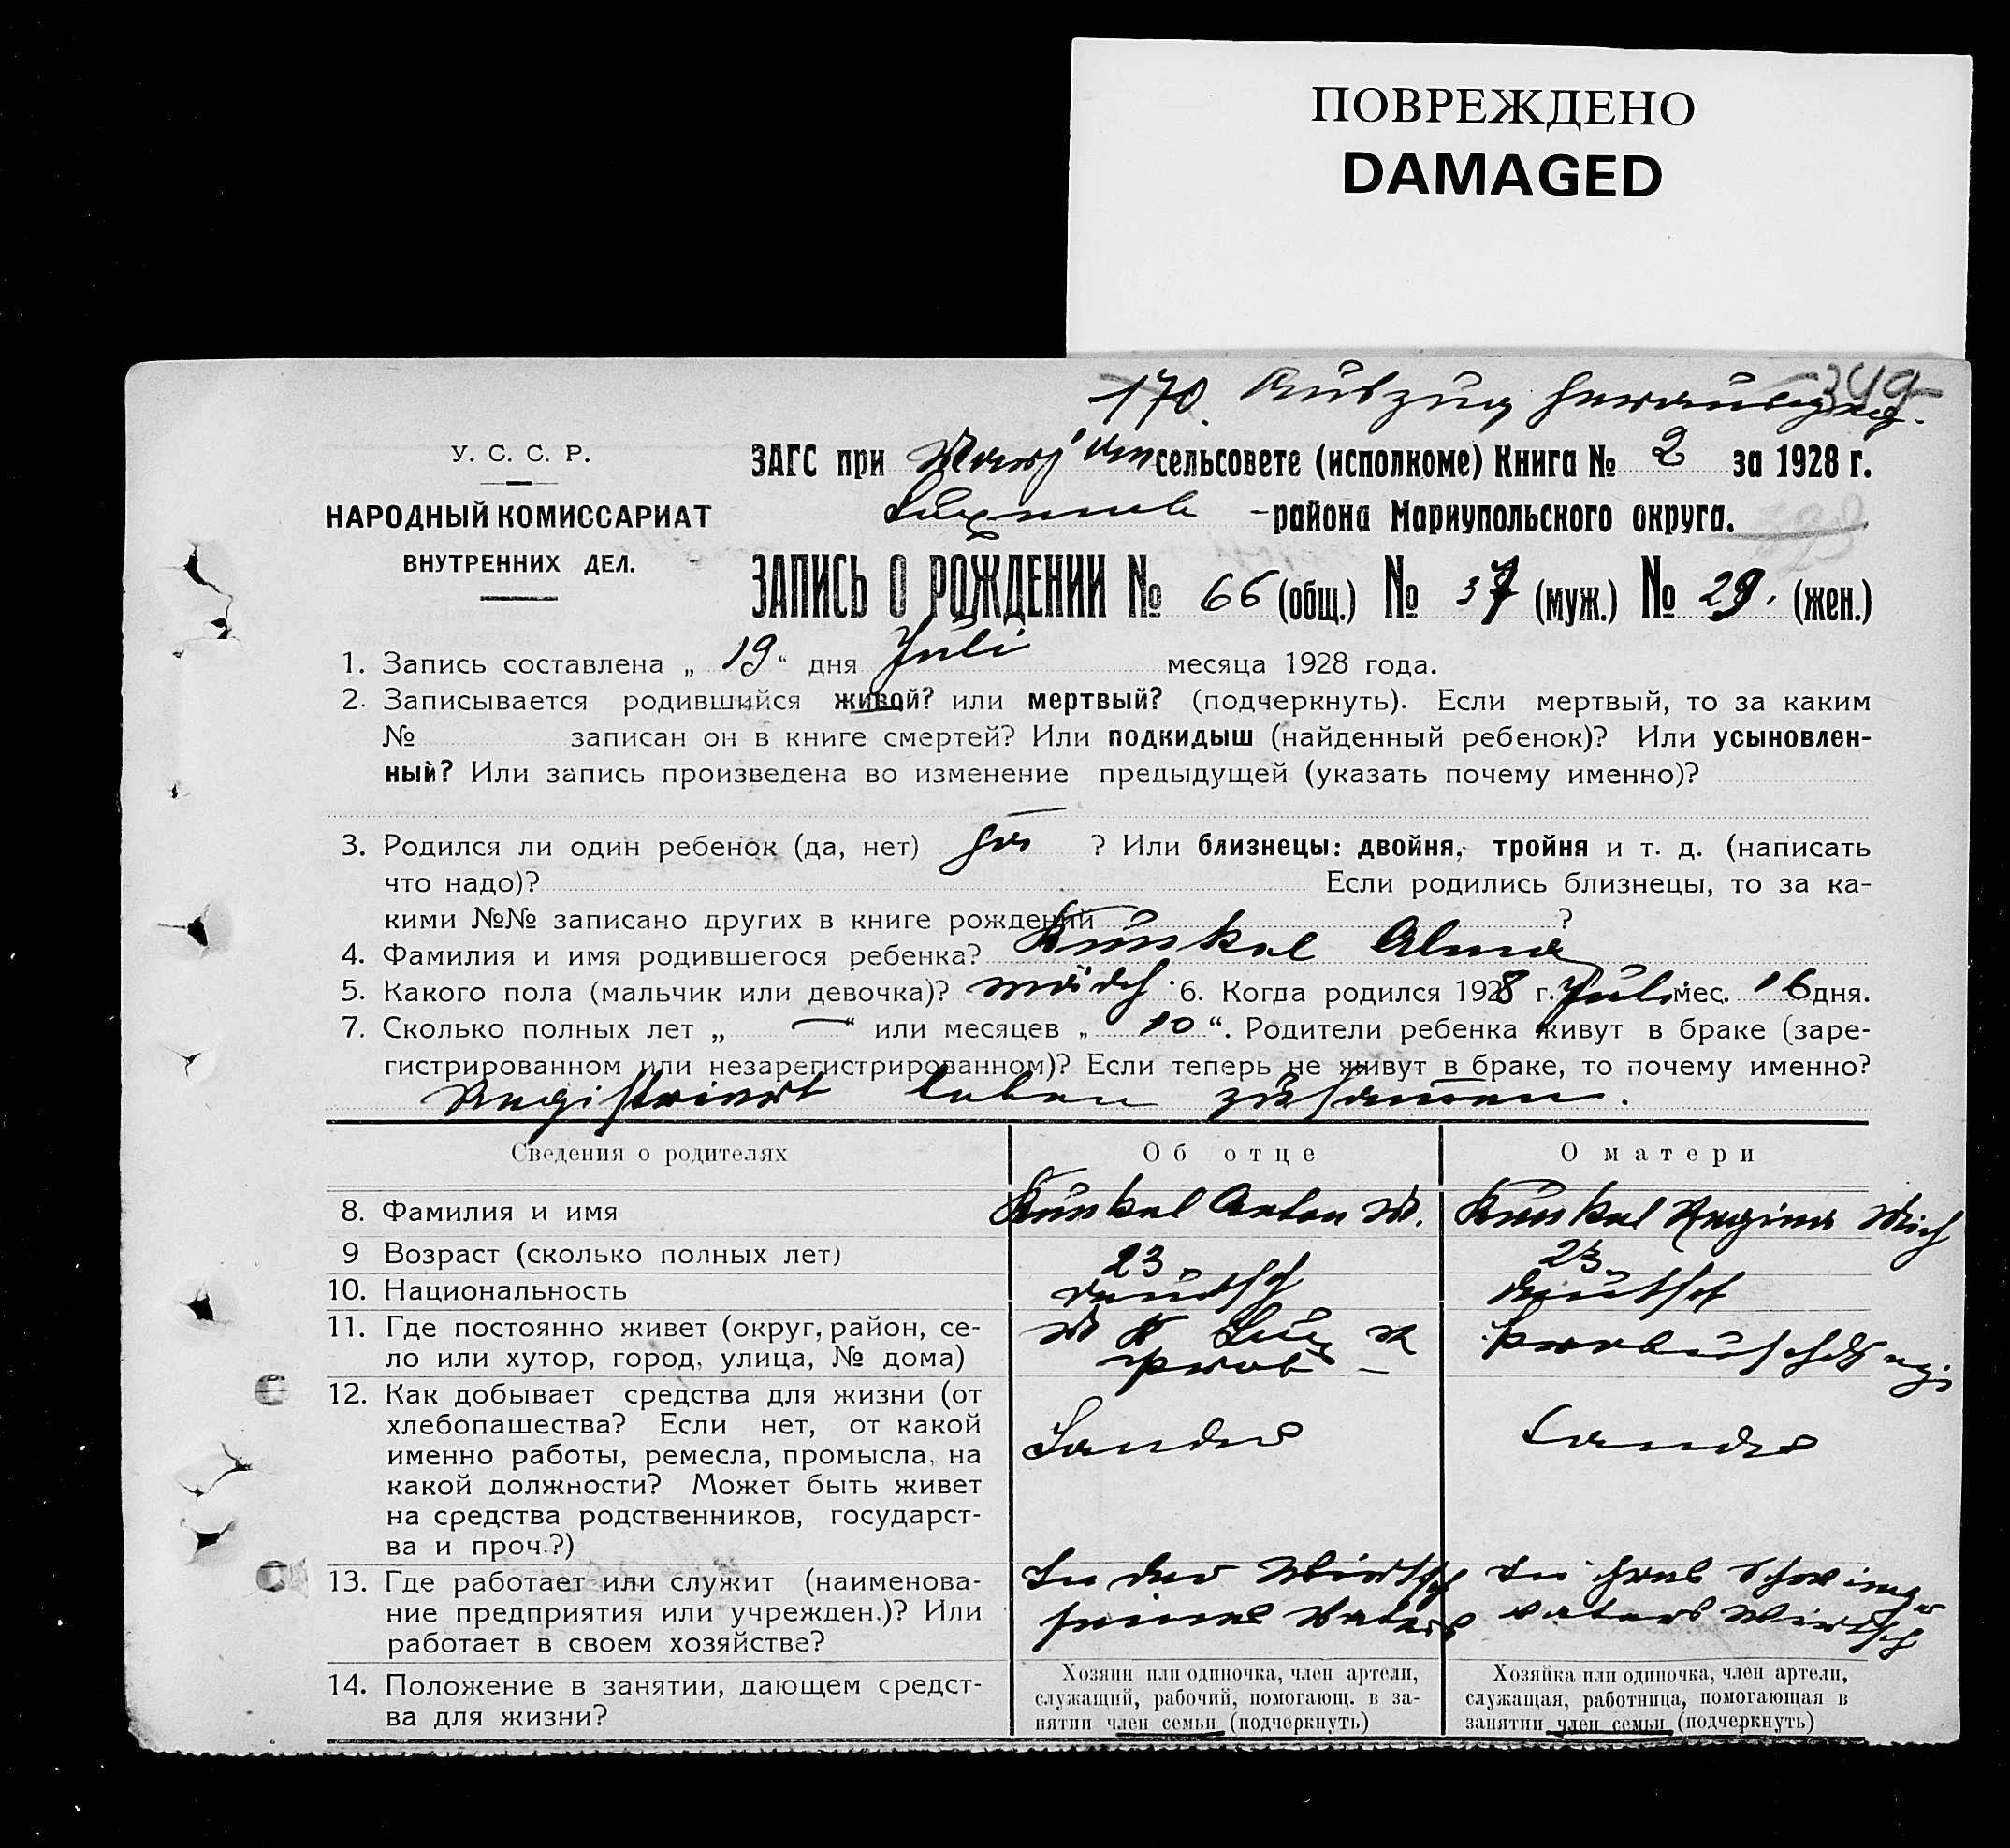 ПОВРЕЖДЕНО
DAMAGED
170. Auszug
349
У. С. С. Р.
НАРОДНЫЙ КОМИССАРИАТ
ВНУТРЕННИХ ДЕЛ.
ЗАГС при сельсовете (исполкоме) Книга № 2 за 1928 г.
-района Мариупольского округа.
ЗАПИСЬ О РОЖДЕНИИ № 66 (общ.) № 37 (муж.) № 29. (жен.)
1. Запись составлена „ 19 “ дня Juli месяца 1928 года.
2. Записывается родившийся живой? или мертвый? (подчеркнуть). Если мертвый, то за каким
№ записан он в книге смертей? Или подкидыш (найденный ребенок)? Или усыновлен-
ный? Или запись произведена во изменение предыдущей (указать почему именно)?
3. Родился ли один ребенок (да, нет) ? Или близнецы: двойня, тройня и т. д. (написать
что надо)? Если родились близнецы, то за ка-
кими №№ записано других в книге рождений ?
4. Фамилия и имя родившегося ребенка? Kunkel Alma
5. Какого пола (мальчик или девочка)? mädch 6. Когда родился 1928 г. Juli мес. 16 дня.
7. Сколько полных лет „ — “ или месяцев „ 10 “. Родители ребенка живут в браке (заре-
гистрированном или незарегистрированном)? Если теперь не живут в браке, то почему именно?
Registriert leben zusammen.
Сведения о родителях Об отце О матери
8. Фамилия и имя Kunkel Anton M. Kunkel Regina Mich
9 Возраст (сколько полных лет) 23 23
10. Национальность deutsch deutsch
11. Где постоянно живет (округ, район, се-
ло или хутор, город, улица, № дома)
12. Как добывает средства для жизни (от
хлебопашества? Если нет, от какой
именно работы, ремесла, промысла, на
какой должности? Может быть живет
на средства родственников, государст-
ва и проч.?)
13. Где работает или служит (наименова- In der Wirtsch In ihres Schwieger
ние предприятия или учрежден.)? Или seines Vaters vaters Wirtsch
работает в своем хозяйстве?
14. Положение в занятии, дающем средст-
ва для жизни?
Хозяин или одиночка, член артели,
служащий, рабочий, помогающ. в за-
нятии член семьи (подчеркнуть)
Хозяйка или одиночка, член артели,
служащая, работница, помогающая в
занятии член семьи (подчеркнуть)